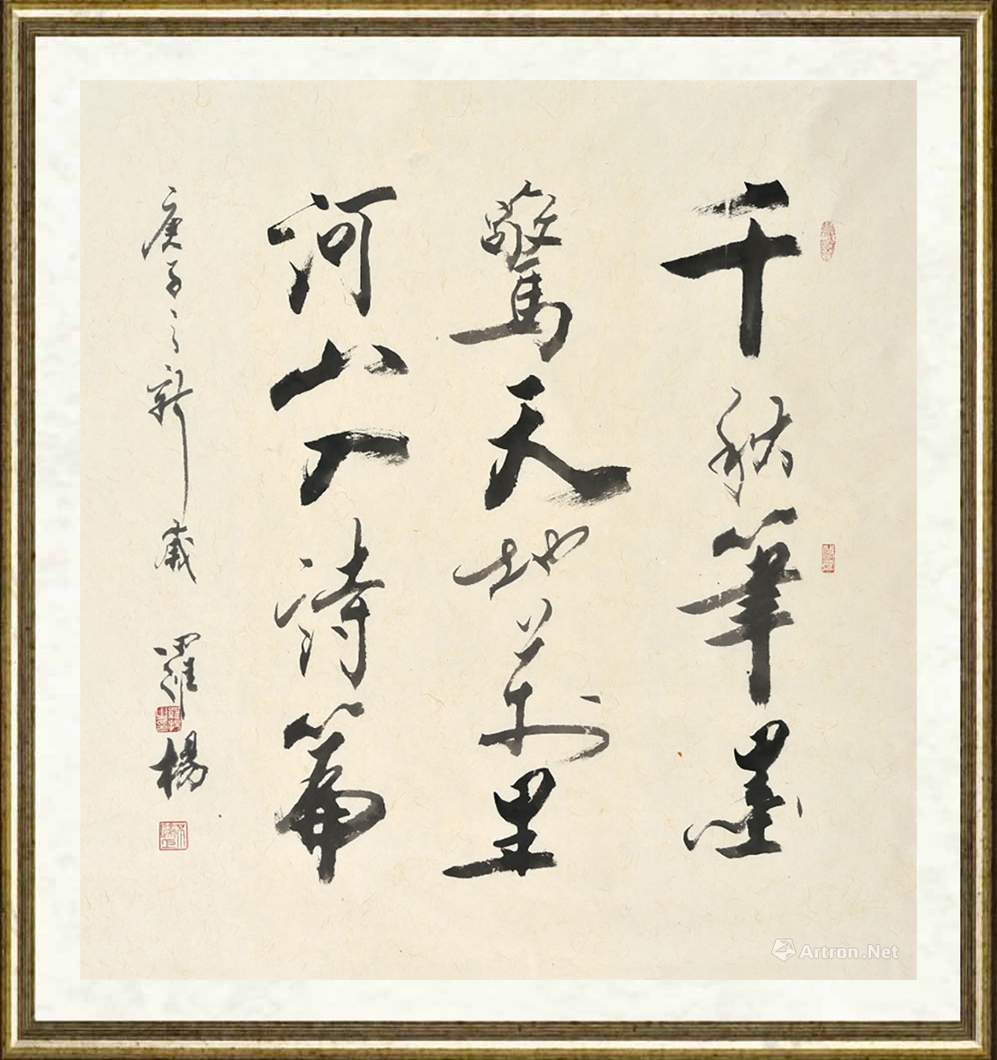 千秋筆墨
驚天地萬里
河山入詩篇
庚子之新歲 羅楊
Artron.Net